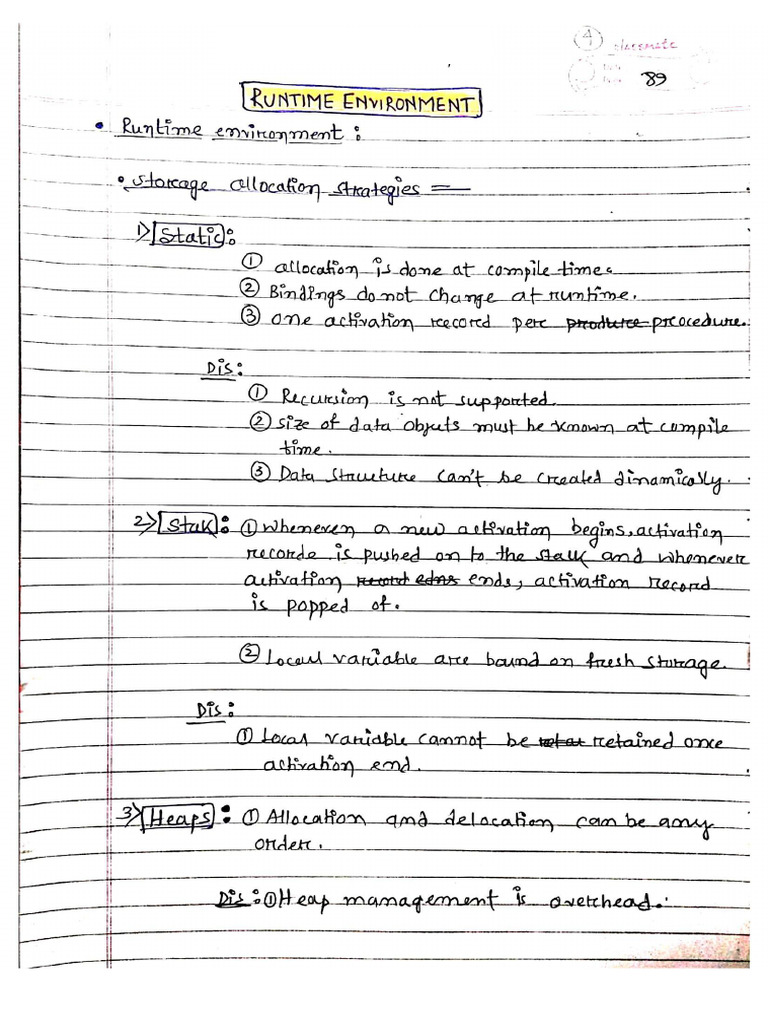 4 placemate
89
RUNTIME ENVIRONMENT
• Runtime environment :
• Storage allocation strategies =
1) Static :
① allocation is done at compile time.
② Bindings do not change at runtime.
③ one activation record per produre procedure.
Dis :
① Recursion is not supported.
② size of data objuts must be known at compile
time.
③ Data structure can't be created dinamically.
2) Stak : ① Whenever a new activation begins, activation
recorde is pushed on to the stak and whenever
activation record edns ends, activation record
is popped of.
② Locaul variable are bound on fresh storage.
Dis :
① Local variable cannot be retained once
activation end.
3) Heaps : ① Allocation and delocation can be any
order.
Dis : ① Heap management is overhead.